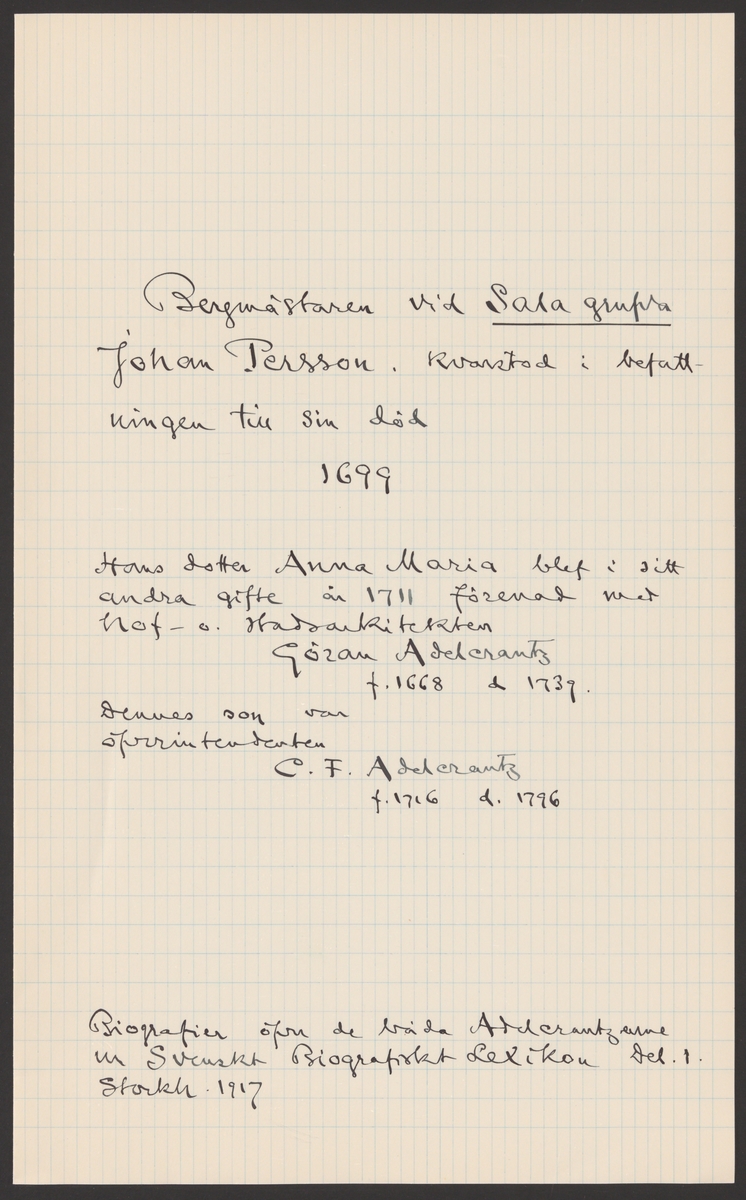 Bergmästaren vid Sala grufva
Johan Persson. kvarstod i befatt-
ningen till sin död
1699
Hans dotter Anna Maria blef i sitt
andra gifte år 1711 förenad med
hof- o. stadsarkitekten
Göran Adelcrantz
f. 1668 d 1739.
Dennes son var
öfverintendenten
C. F. Adelcrantz
f. 1716 d. 1796
Biografier öfver de båda Adelcrantzarne
ur Svenskt Biografiskt Lexikon Del. 1.
Stockh. 1917